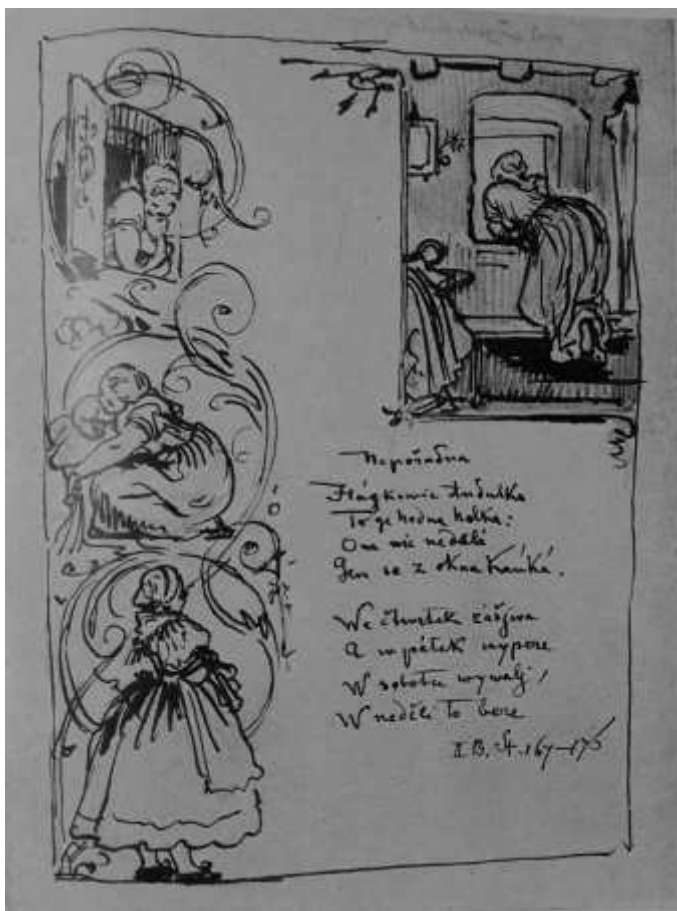 Nepořádna
Hágkowic Andulka
To ge hodna holka:
Ona nic nedělá
Gen se z okna kauká.
We čtwrtek zašjwa
A w pátek wypere
W sobotu wywalj
W neděli to bere
II B. St. 167–175